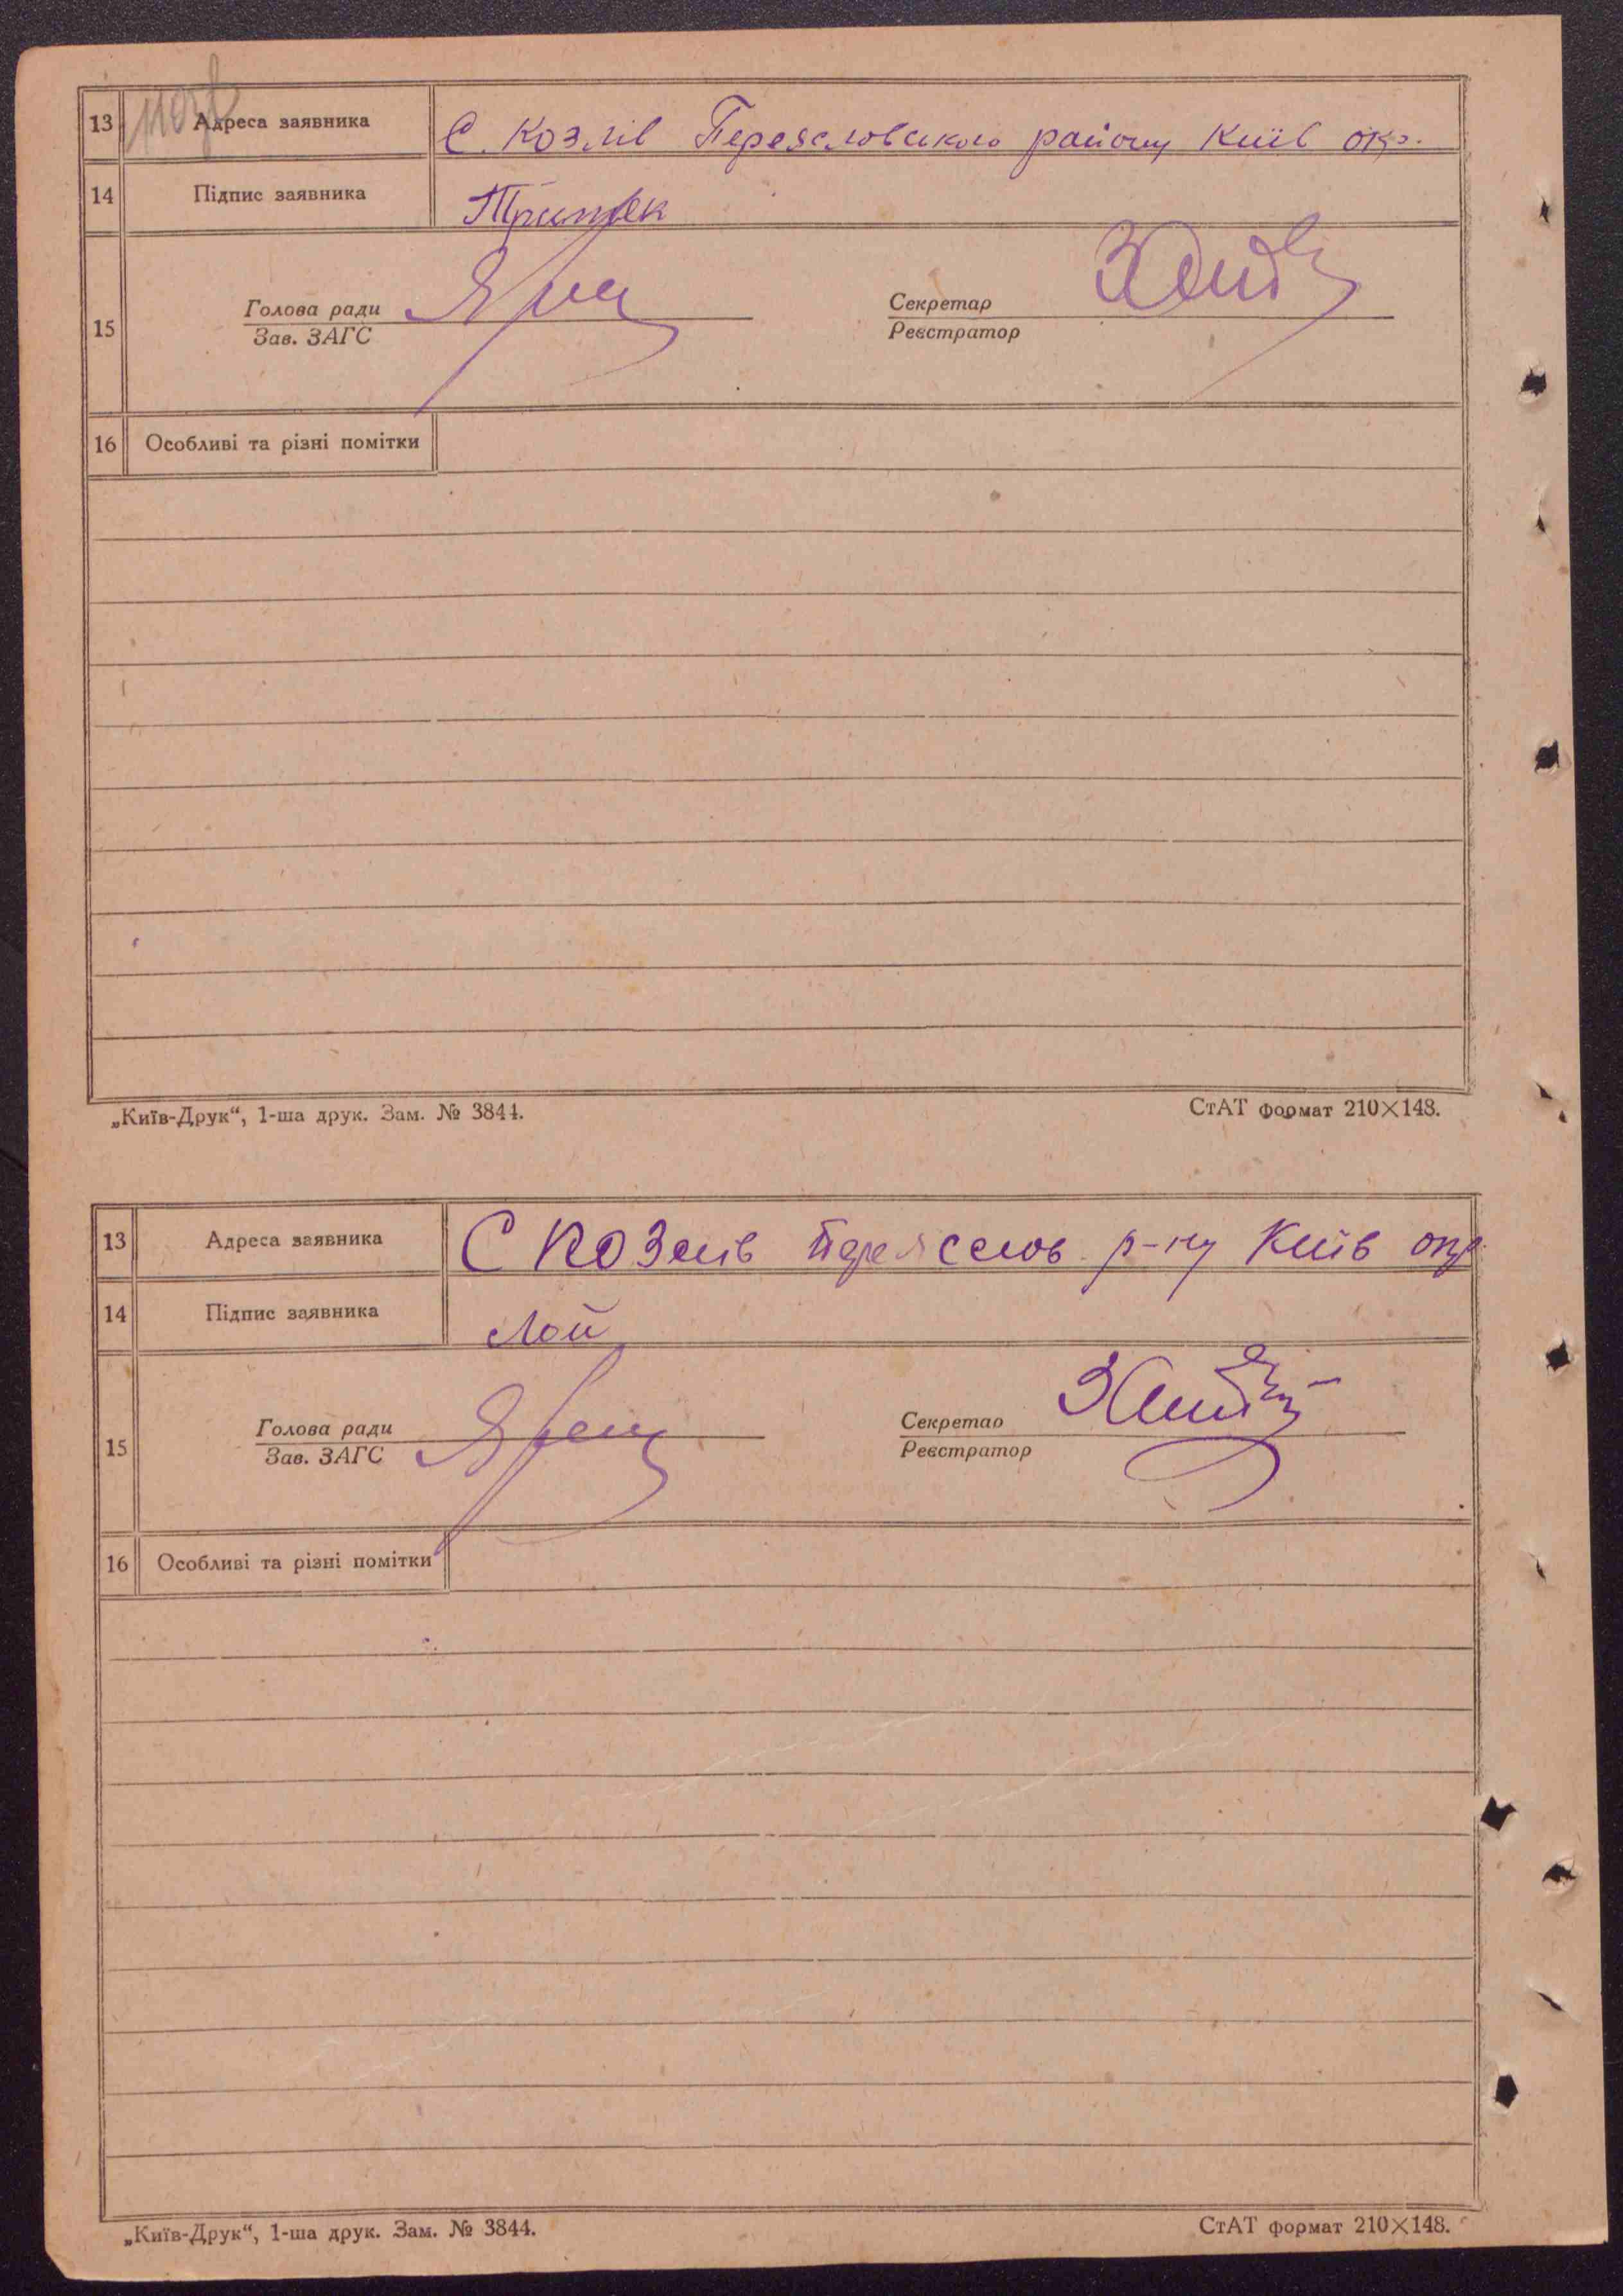 13 Адреса заявника С. Козлів Переясловського району Київ окр.
14 Підпис заявника
15 Голова ради Секретар
Зав. ЗАГС Реєстратор
16 Особливі та різні помітки
„Київ-Друк“, 1-ша друк. Зам. № 3844. СтАТ формат 210×148.
13 Адреса заявника С Козлів Переяслов р-ну Київ окр
14 Підпис заявника Лой
15 Голова ради Секретар
Зав. ЗАГС Реєстратор
16 Особливі та різні помітки
„Київ-Друк“, 1-ша друк. Зам. № 3844. СтАТ формат 210×148.